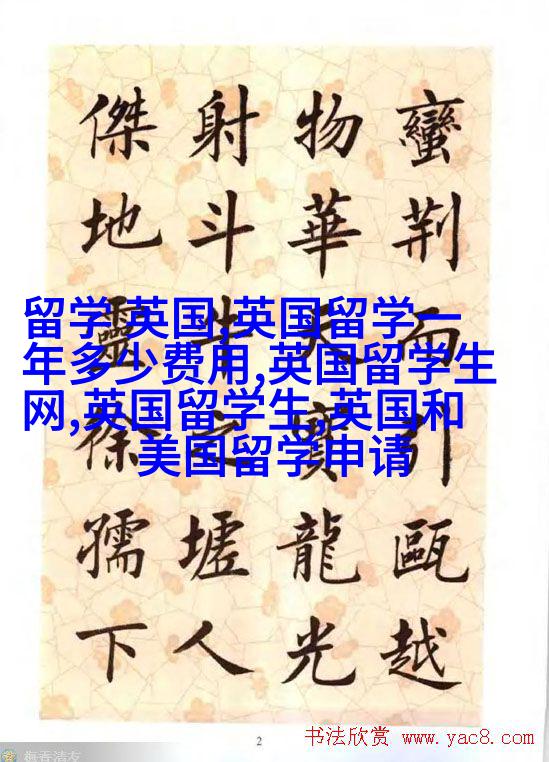 蠻荊而引甌越
物華天寶龍光
射斗牛之墟人
傑地靈徐孺下
留学,英国,英国留学一
年多少费用,英国留学生
网,英国留学生,英国和
美国留学申请
2
书法欣赏 www.yac8.com